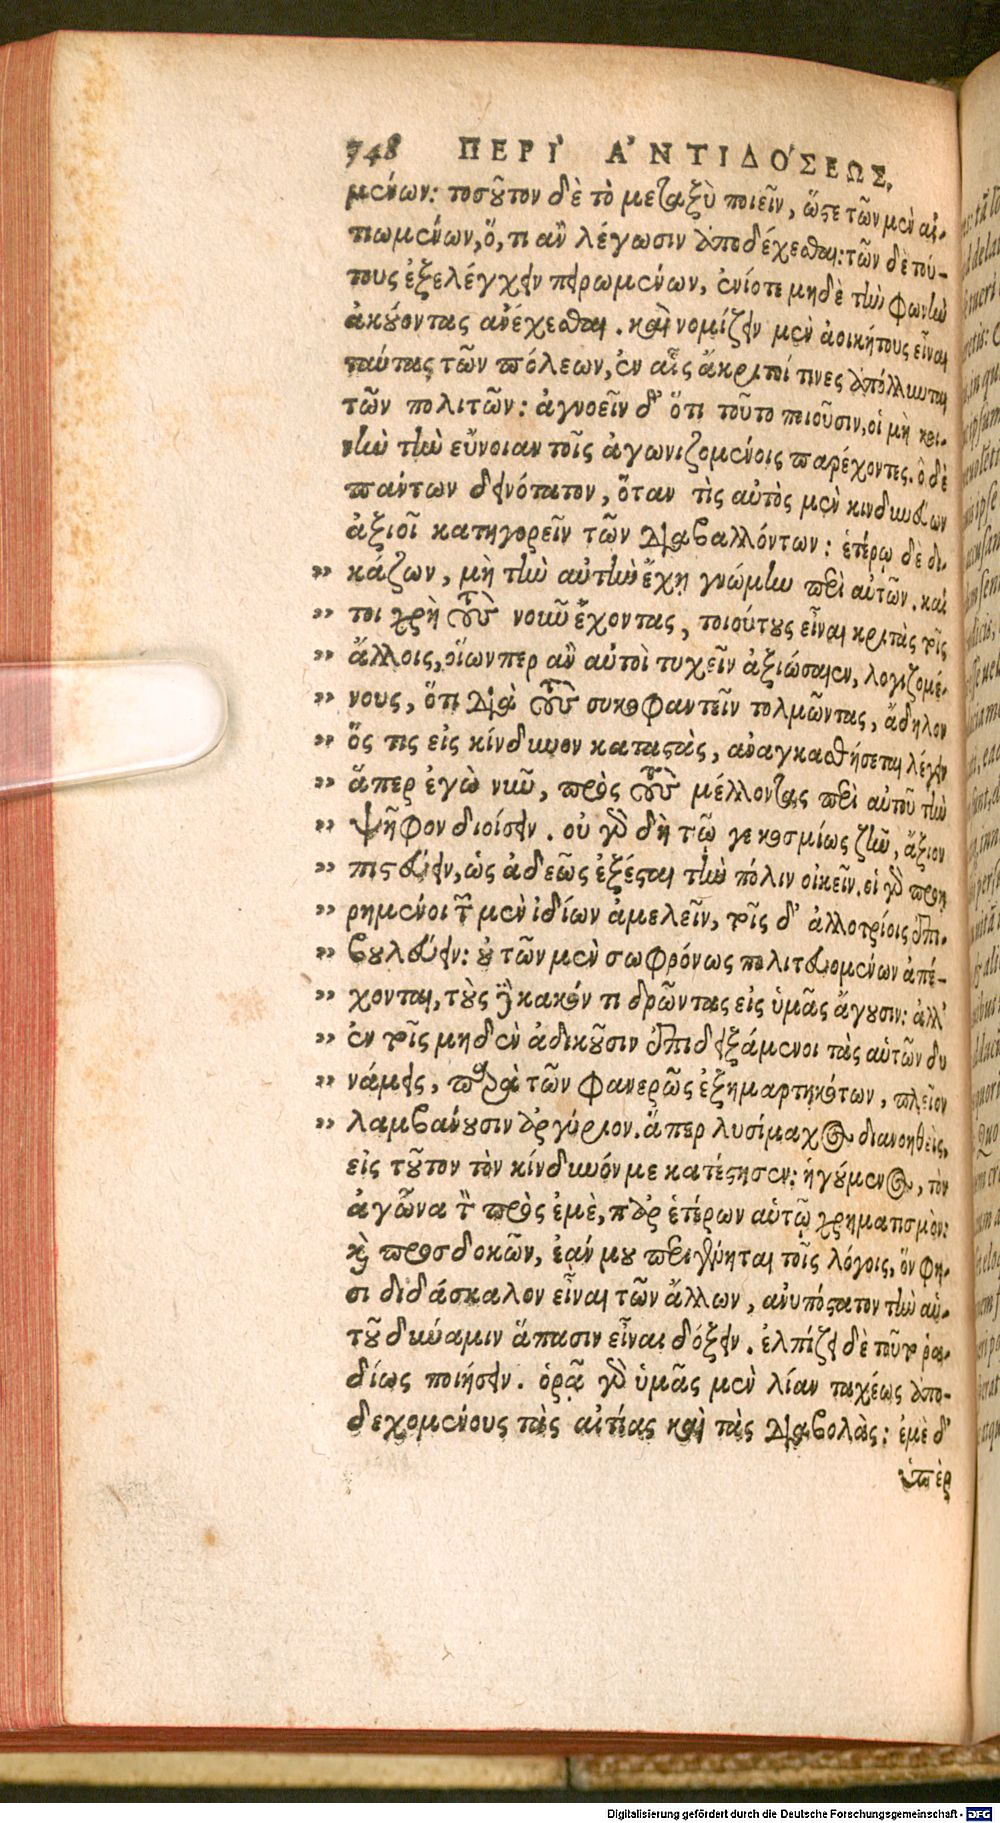 748 ΠΕΡΙ᾽ Α᾽ΝΤΙΔΟ΄ΣΕΩΣ.
μένων: τοσοῦτον δὲ τὸ μεταξὺ ποιεῖν, ὥστε τῶν μὲν αἰ-
τιωμένων, ὅ, τι ἂν λέγωσιν ἀποδέχεσθαι: τῶν δὲ τού-
τους ἐξελέγχειν πειρωμένων, ἐνίοτε μηδὲ τὴν φωνὴν
ἀκούοντας ἀνέχεσθαι. καὶ νομίζειν μὲν ἀοικήτους εἶναι
ταύτας τῶν πόλεων, ἐν αἷς ἄκριτοί τινες ἀπόλλυνται
τῶν πολιτῶν: ἀγνοεῖν δ' ὅτι τοῦτο ποιοῦσιν, οἱ μὴ κοι-
νὴν τὴν εὔνοιαν τοῖς ἀγωνιζομένοις παρέχοντες. ὃ δὲ
πάντων δεινότατον, ὅταν τὶς αὐτὸς μὲν κινδυνεύων
ἀξιοῖ κατηγορεῖν τῶν διαβαλλόντων: ἑτέρῳ δὲ δι-
" κάζων, μὴ τὴν αὐτὴν ἔχῃ γνώμην περὶ αὐτῶν. καί
" τοι χρὴ τοὺς νοῦν ἔχοντας, τοιούτους εἶναι κριτὰς τοῖς
" ἄλλοις, οἵωνπερ ἂν αὐτοὶ τυχεῖν ἀξιώσαιεν, λογιζομέ-
" νους, ὅτι διὰ τοὺς συκοφαντεῖν τολμῶντας, ἄδηλον
" ὅς τις εἰς κίνδυνον καταστὰς, ἀναγκασθήσεται λέγειν
" ἅπερ ἐγὼ νῦν, πρὸς τοὺς μέλλοντας περὶ αὐτοῦ τὴν
" ψῆφον διοίσειν. οὐ γὰρ δὴ τῷ γε κοσμίως ζῆν, ἄξιον
" πιστεύειν, ὡς ἀδεῶς ἐξέσται τὴν πόλιν οἰκεῖν. εἰ γὰρ προῃ
" ρημένοι τῶν μὲν ἰδίων ἀμελεῖν, τοῖς δ' ἀλλοτρίοις ἐπι-
" βουλεύειν: οὐ τῶν μὲν σωφρόνως πολιτευομένων ἀπέ-
" χονται, τοὺς δὲ κακόν τι δρῶντας εἰς ὑμᾶς ἄγουσιν: ἀλλ'
" ἐν τοῖς μηδὲν ἀδικοῦσιν ἐπιδειξάμενοι τὰς αὑτῶν δυ
" νάμεις, παρὰ τῶν φανερῶς ἐξημαρτηκότων, πλεῖον
" λαμβάνουσιν ἀργύριον. ἅπερ λυσίμαχος διανοηθεὶς,
εἰς τοῦτον τὸν κίνδυνόν με κατέστησεν: ἡγούμενος, τὸν
ἀγῶνα τὸν πρὸς ἐμὲ, παρ ἑτέρων αὑτῷ χρηματισμὸν:
καὶ προσδοκῶν, ἐάν μου περιγένηται τοῖς λόγοις, ὅν φη-
σι διδάσκαλον εἶναι τῶν ἄλλων, ἀνυπόστατον τὴν αὑ-
τοῦ δύναμιν ἅπασιν εἶναι δόξειν. ἐλπίζει δὲ τοῦτο ῥα-
δίως ποιήσειν. ὁρᾷ γὰρ ὑμᾶς μὲν λίαν ταχέως ἀπο-
δεχομένους τὰς αἰτίας καὶ τὰς διαβολὰς: ἐμὲ δ'
ὑπὲρ
Digitalisierung gefördert durch die Deutsche Forschungsgemeinschaft - DFG